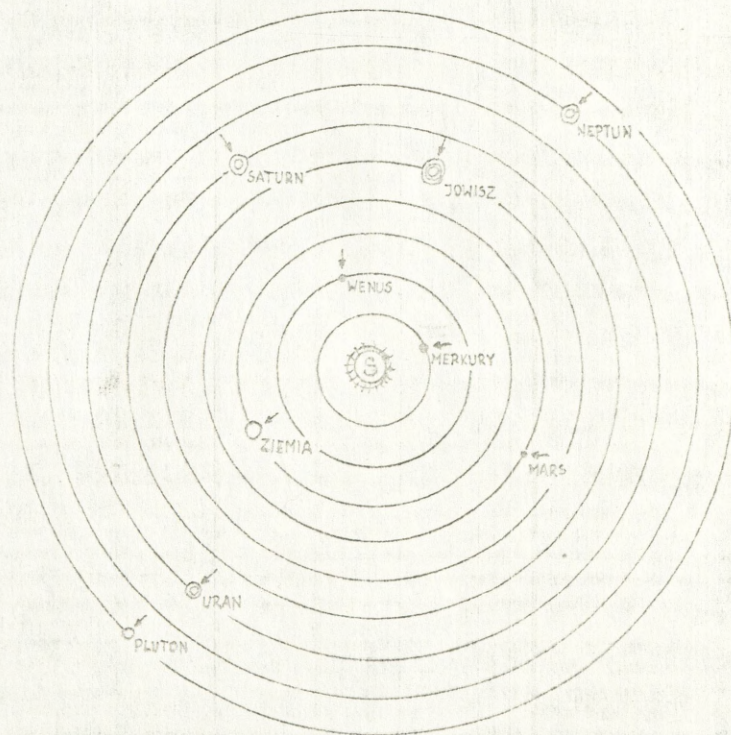 NEPTUN
SATURN
JOWISZ
WENUS
MERKURY
S
ZIEMIA
MARS
URAN
PLUTON